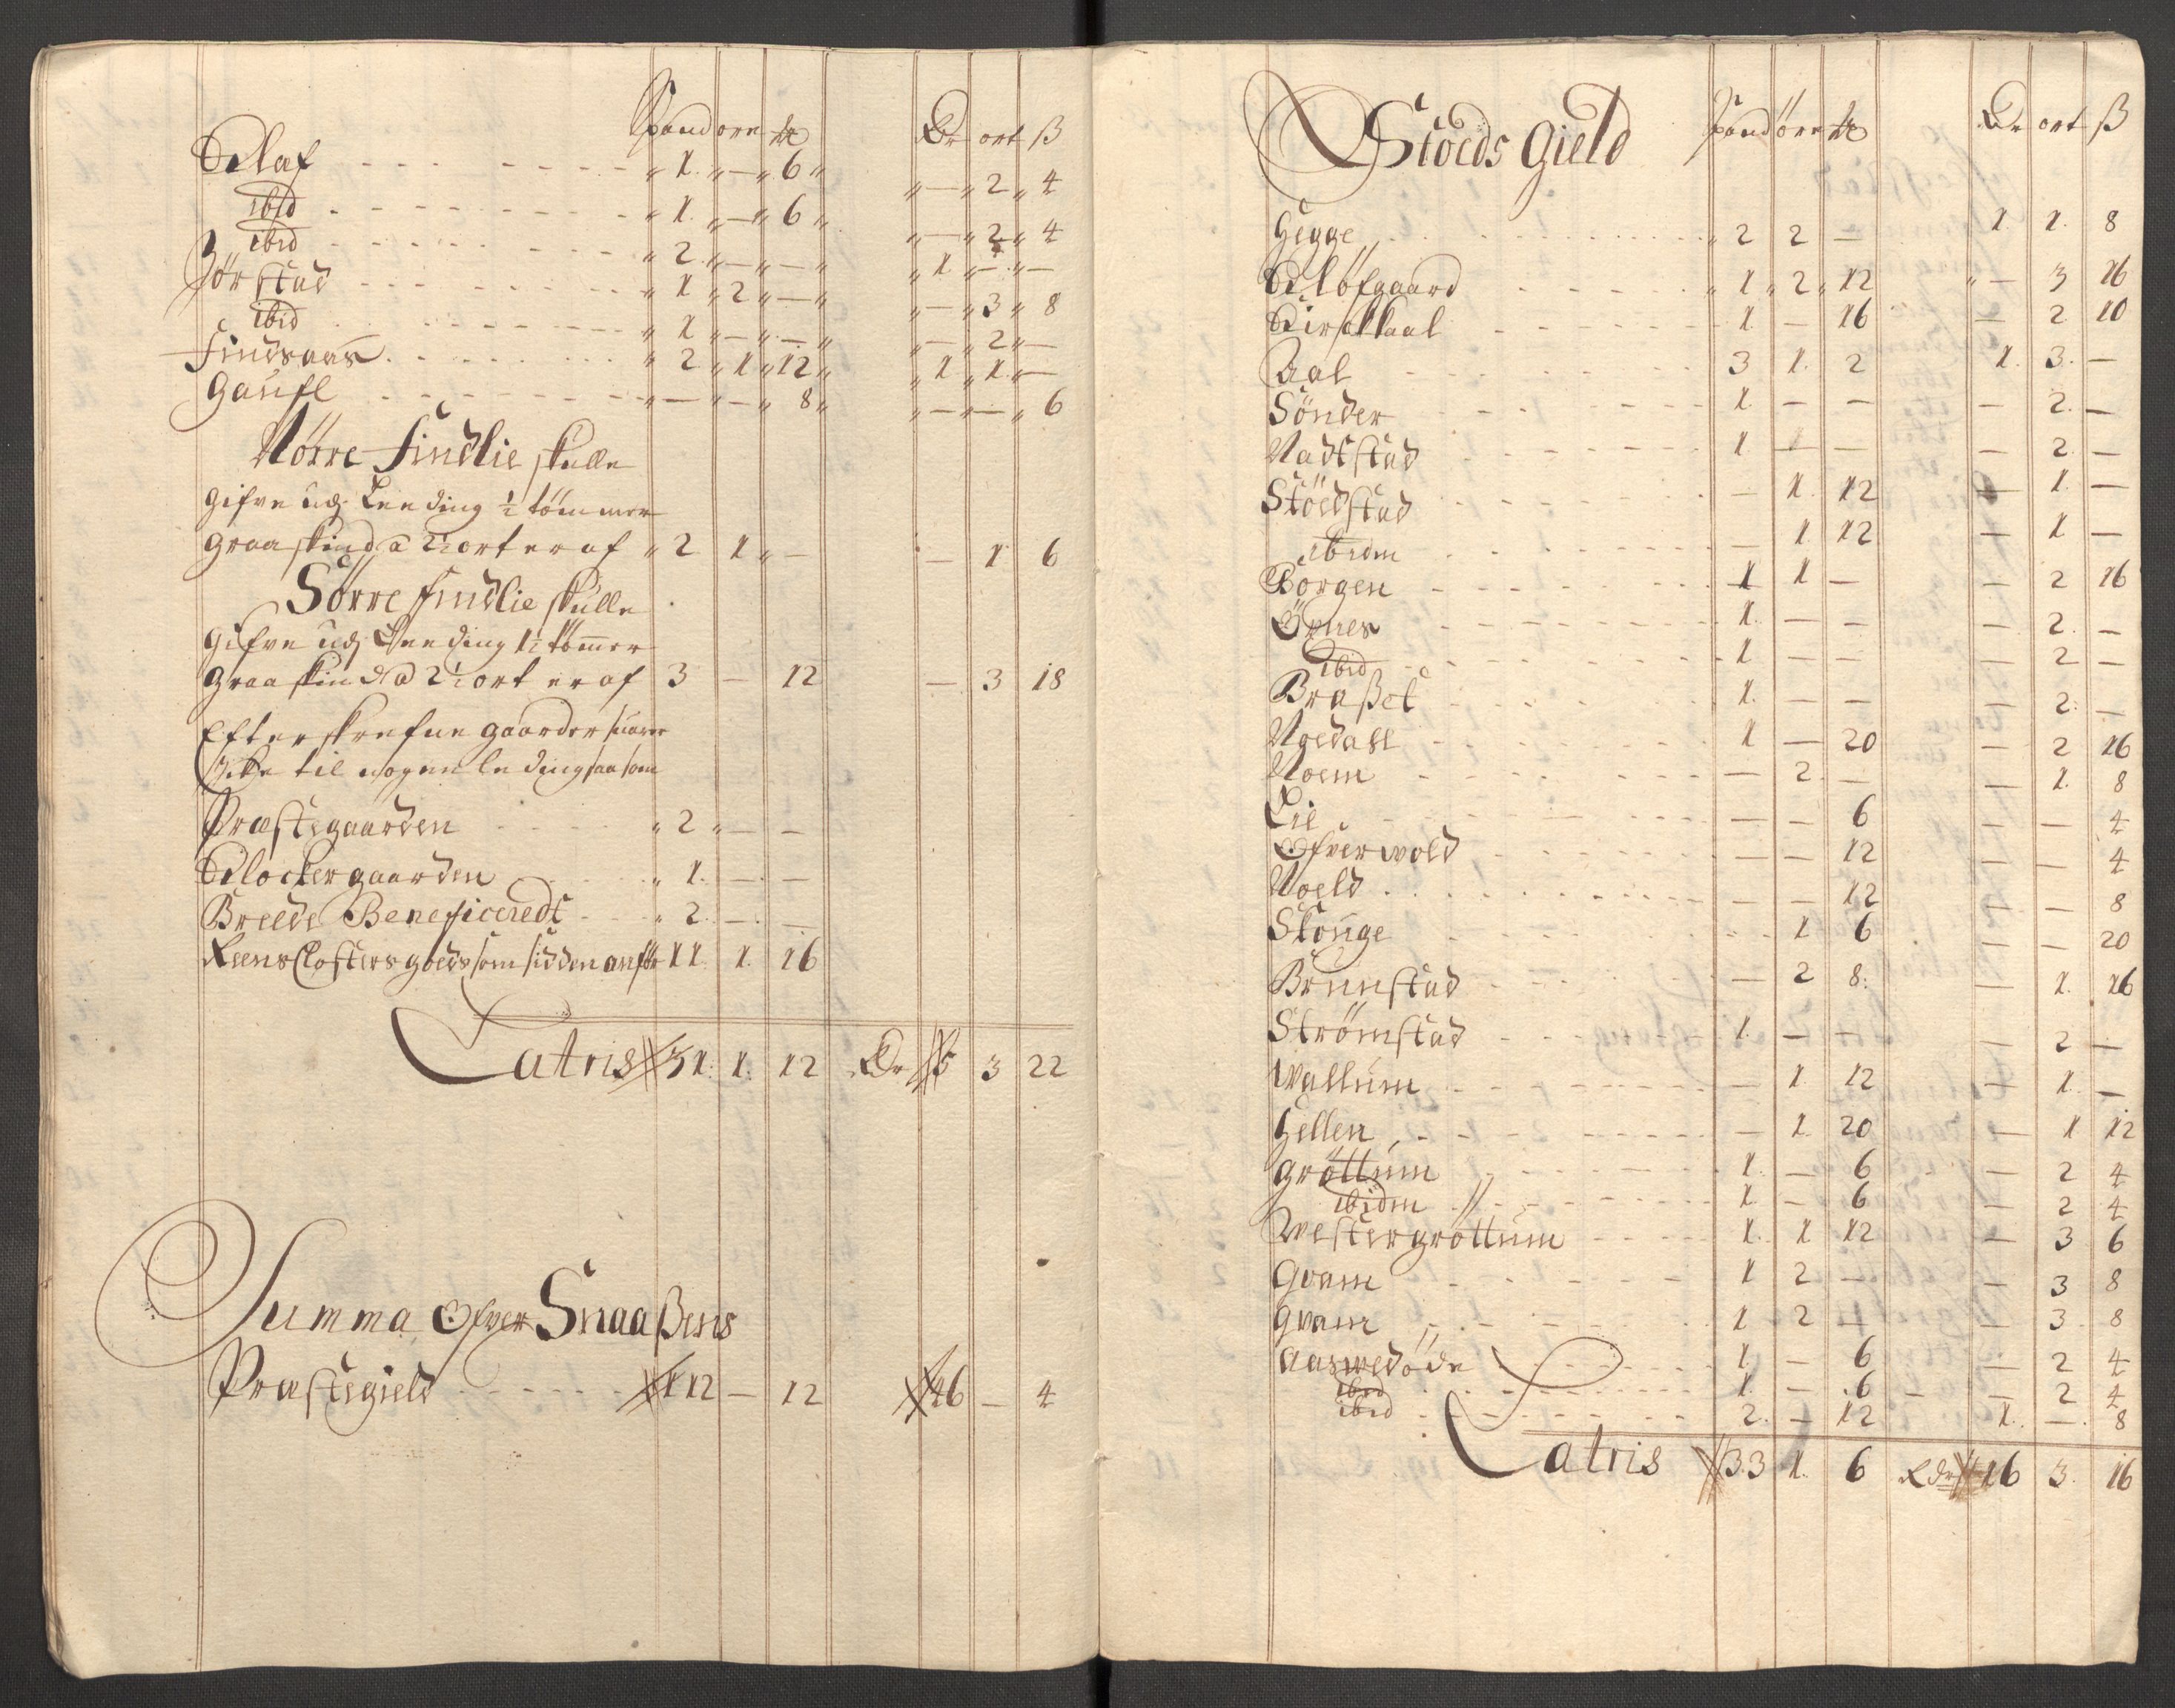 Spand ørе ₥ Dr ort ß
Olaf - - - - - - - „ 1. „ — „ 6 „ „ — „ 2 „ 4
ibid - - - - - - - „ 1. „ — „ 6 „ „ — „ 2 „ 4
ibid - - - - - - - „ 2. „ — „ — „ „ 1. „ — „ —
Jørstad - - - - - - „ 1 „ 2 „ — „ „ — „ 3 „ 8
ibid - - - - - - - „ 1 „ — „ — „ „ — „ 2 „ —
Findsaas - - - - - „ 2 „ 1 „ 12 „ „ 1 „ 1 „ —
Gaufl - - - - - - - „ — „ — „ 8 „ „ — „ — „ 6
Nörre Findlie skulle
gifve udj Leeding ½ tömmer
graaskind a 2½ ort er af „ 2 1 „ — — 1 6
Sörre findlie skulle
gifve udj Leeding 1½ tömmer
graaskind a 2½ ort er af 3 — 12 — 3 18
Efterskrefne gaarder suarer
Icke til nogen leding saasom
Præstegaarden - - - „ 2 „ — —
Klockergaarden - - - „ 1. — —
Breede Beneficeredt - - - „ 2. — —
Reens Closters goeds som sidden anför 11. 1. 16
Latris 31. 1. 12 Dr 15 3 22
Summa Ofver Snaaßens
Præstegield - - - - - 112 — 12 46 — 4
Stoeds Gield Spand öre ₥ Dr ort ß
Hegge - - - - - - „ 2 2 — 1. 1. 8
Kløfgaard - - - - - „ 1 „ 2 „ 12 „ — 3 16
Kirchhaal - - - - - 1. — 16 — 2 10
Aal - - - - - - 3 1. 2 1. 3. —
Sönder - - - - - - 1. — — — 2. —
Nadtstad - - - - - - 1 — — — 2. —
Stöedstad - - - - - - — 1. 12 — 1. —
ibidm - - - - - - — 1 12 — 1 —
Borgen - - - - - - 1 1 — — 2 16
Öxnes - - - - - - 1. — — — 2. —
ibid - - - - - - 1 — — — 2 —
Braßet - - - - - - 1. — — — 2. —
Noedahl - - - - - - 1 — 20 — 2 16
Noem - - - - - - — 2. — — 1. 8
Lie - - - - - - — — 6 — — 4
Ofverwold - - - - - - — — 12 — — 4
Noeld - - - - - - — — 12 — — 8
Stönge - - - - - - 1 6 — — 20
Brunstad - - - - - - — 2 8. — 1. 16
Strömstad - - - - - - 1. — — — 2 —
Wallum - - - - - - — 1 12 — 1. —
Hellen - - - - - - — 1. 20 — 1 12
gröttum - - - - - - 1. — 6 — 2 4
ibidm - - - - - - 1 — 6 — 2 4
Westergröttum - - - - 1. 1 12 — 3 6
Qvam - - - - - - 1 2 — — 3 8
qvam - - - - - - 1 2 — — 3. 8
Aaswedöde - - - - - 1. — 6 — 2 4
ibid - - - - - - 1. — 6 — — 2 4
ibid - - - - - - 2. — 12 1. — 8
Latris 33 1. 6 Rdr 16 3. 16